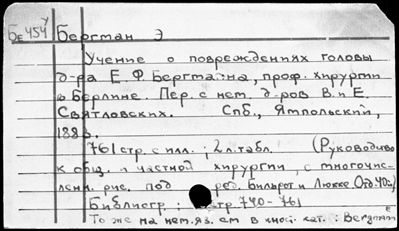 Бе454 У Бергман Э
Учение о повреждениях головы
д-ра Е. Ф. Бергмана, проф. хирургии
в Берлине. Пер. с нем. д-ров В. и Е.
Святловских. Спб., Ямпольский,
1883.
761 стр. с илл.; 2 л. табл. (Руководиво
к общ. и частной хирургии, с многочис-
ленн. рис. под ред. Бильрот и Люкке Отд. 40й)
Библиогр: стр. 740-761
То же на нем. яз. см в иной. кат.: Bergmann E